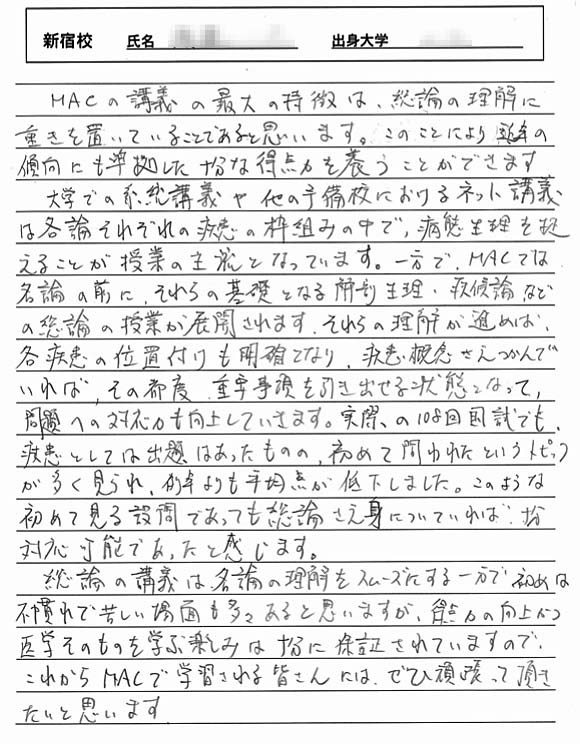 新宿校 氏名 出身大学
MACの講義の最大の特徴は、総論の理解に
重きを置いていることであると思います。このことにより近年の
傾向にも準拠した十分な得点力を養うことができます
大学での系統講義や他の予備校におけるネット講義
は各論それぞれの疾患の枠組みの中で、病態生理を捉
えることが授業の主流となっています。一方で、MACでは
各論の前に、それらの基礎となる解剖生理・症候論など
の総論の授業が展開されます。それらの理解が進めば、
各疾患の位置付けも明確になり、疾患概念さえつかんで
いれば、その都度、重要事項を引き出せる状態となって、
問題への対応力も向上していきます。実際、の108回国試でも、
疾患としては出題はあったものの、初めて問われたというトピック
が多く見られ、例年よりも平均点が低下しました。このような
初めて見る設問であっても総論さえ身についていれば、十分
対応可能であったと感じます。
総論の講義は各論の理解をスムーズにする一方で初めは
不慣れで苦しい場面も多々あると思いますが、得点力の向上かつ
医学そのものを学ぶ楽しみは十分に保証されていますので、
これからMACで学習される皆さんには、ぜひ頑張って頂き
たいと思います